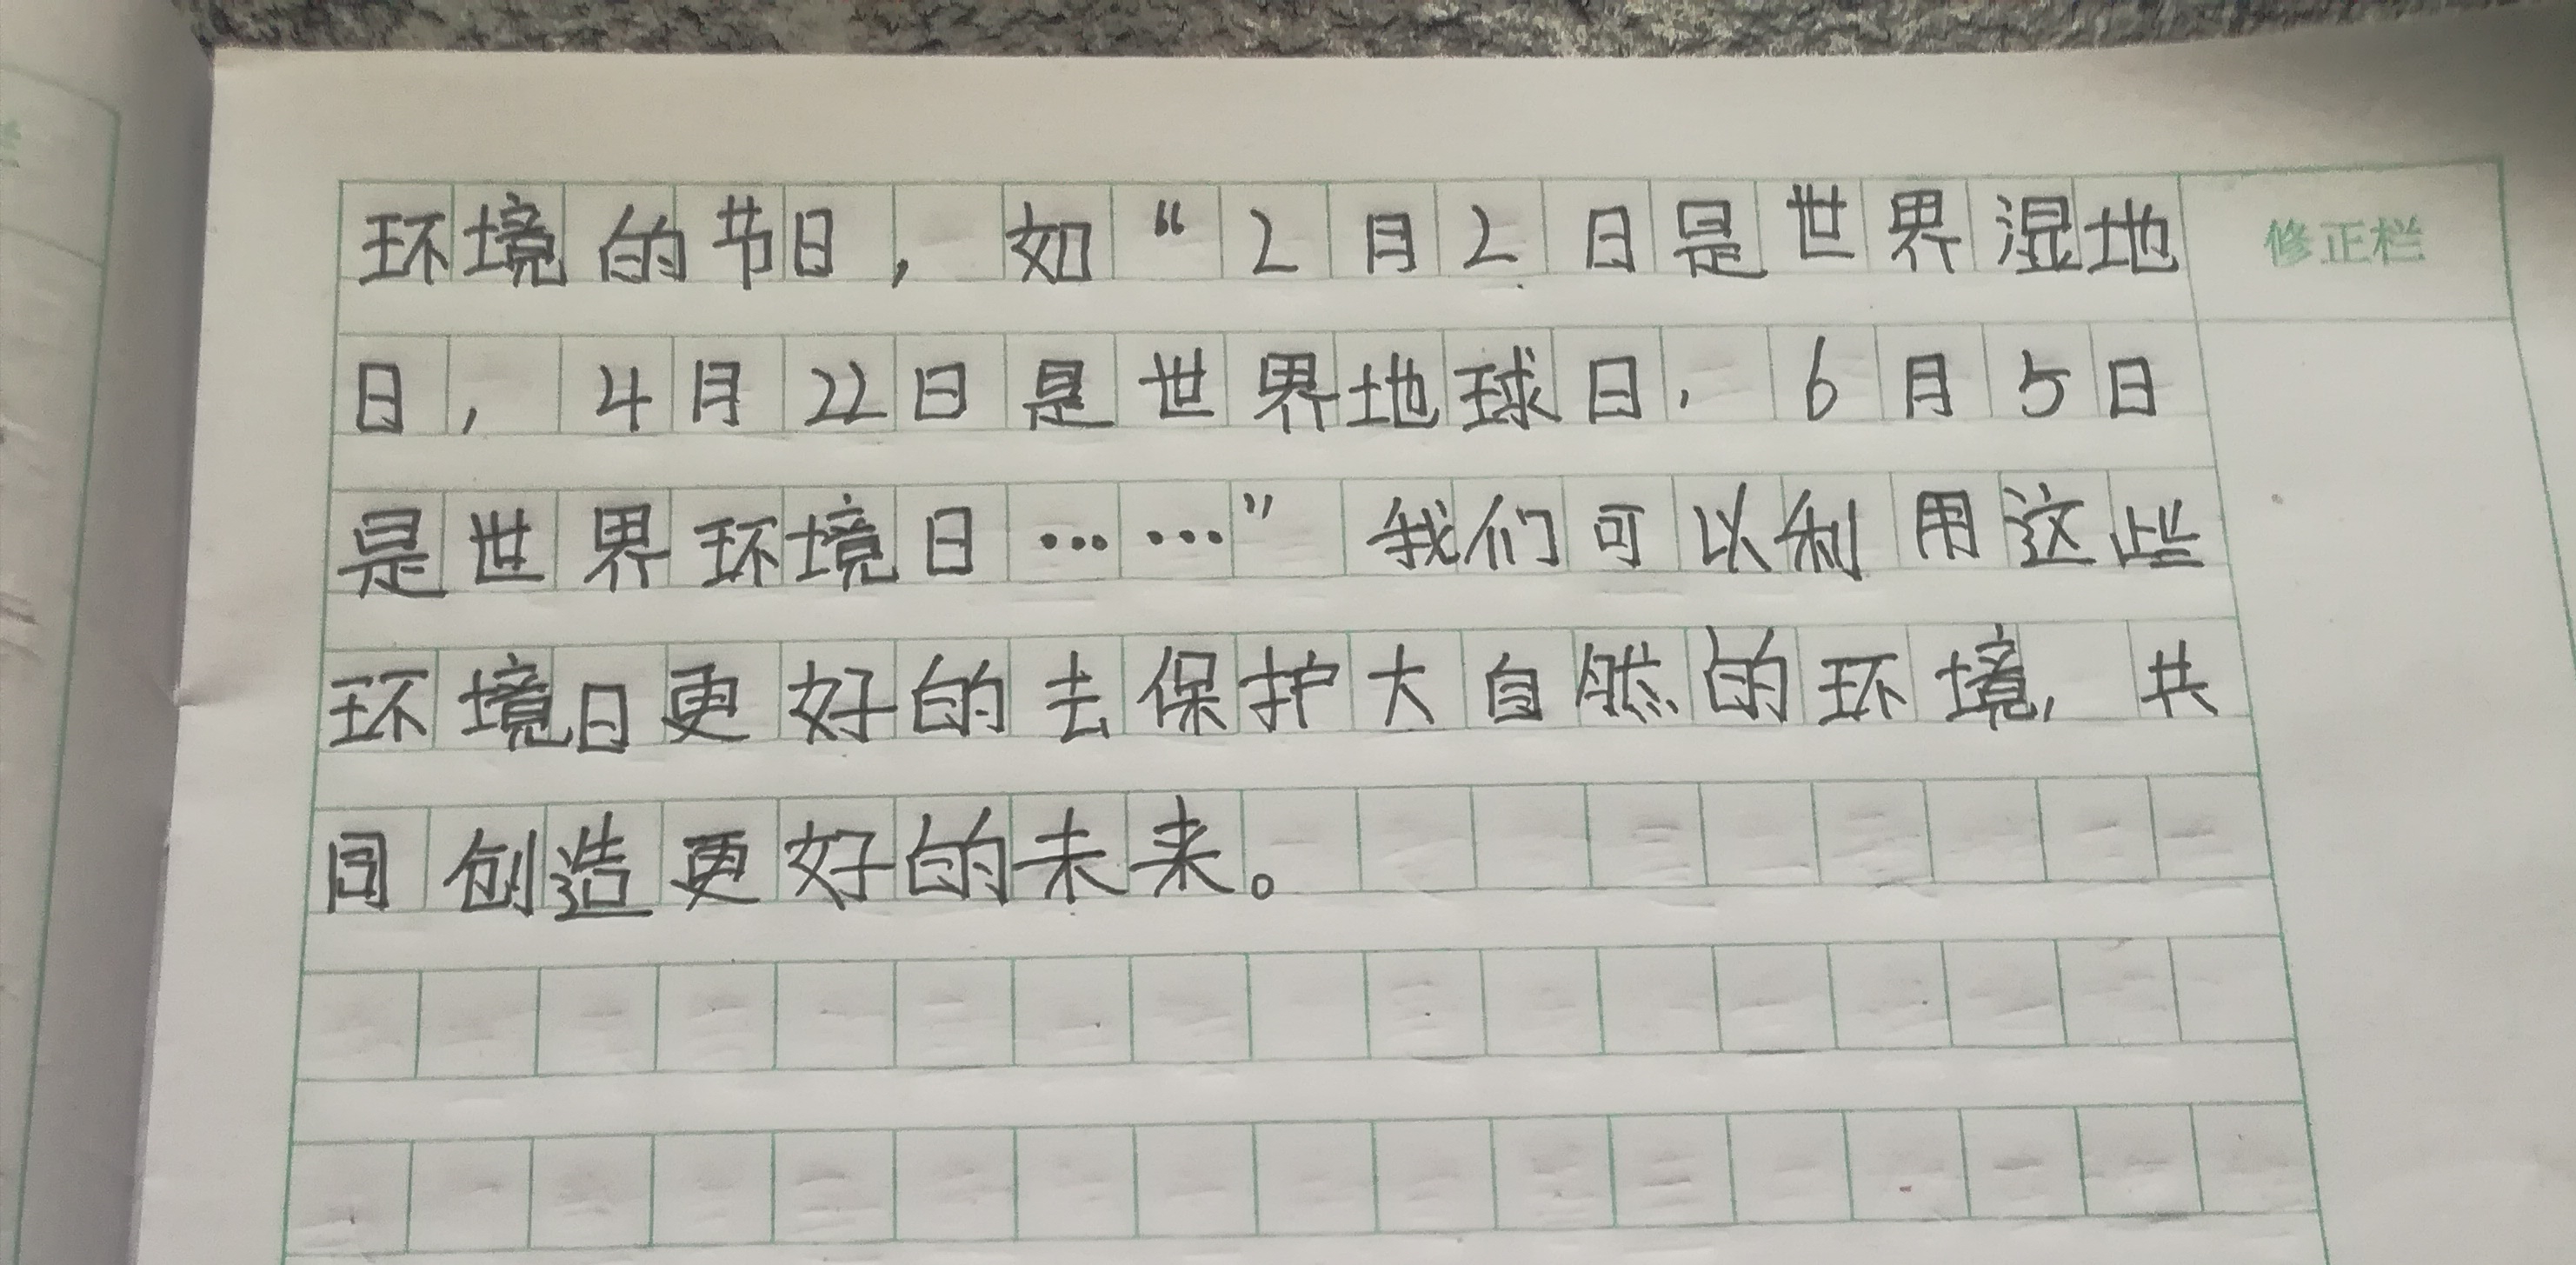 环境的节日，如“2月2日是世界湿地
修正栏
日，4月22日是世界地球日，6月5日
是世界环境日……”我们可以利用这些
环境日更好的去保护大自然的环境，共
同创造更好的未来。